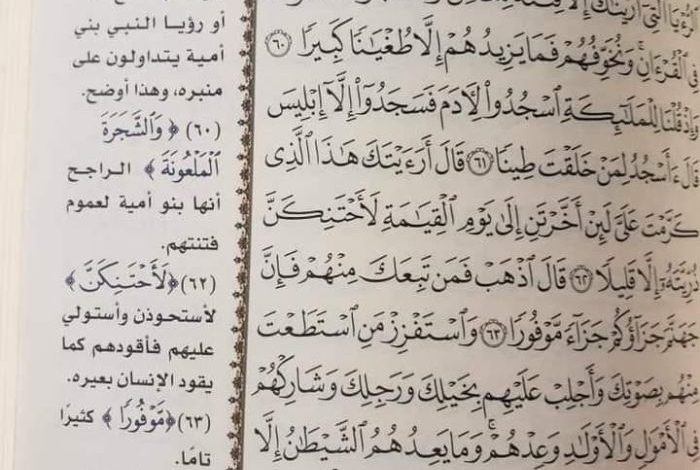 ٱلرُّءْيَا ٱلَّتِىٓ أَرَيْنَٰكَ إِلَّا فِتْنَةً
فِى ٱلْقُرْءَانِ وَنُخَوِّفُهُمْ فَمَا يَزِيدُهُمْ إِلَّا طُغْيَٰنًا كَبِيرًا ٦٠
وَإِذْ قُلْنَا لِلْمَلَٰٓئِكَةِ ٱسْجُدُوا۟ لِءَادَمَ فَسَجَدُوٓا۟ إِلَّآ إِبْلِيسَ
قَالَ ءَأَسْجُدُ لِمَنْ خَلَقْتَ طِينًا ٦١ قَالَ أَرَءَيْتَكَ هَٰذَا ٱلَّذِى
كَرَّمْتَ عَلَىَّ لَئِنْ أَخَّرْتَنِ إِلَىٰ يَوْمِ ٱلْقِيَٰمَةِ لَأَحْتَنِكَنَّ
ذُرِّيَّتَهُۥٓ إِلَّا قَلِيلًا ٦٢ قَالَ ٱذْهَبْ فَمَن تَبِعَكَ مِنْهُمْ فَإِنَّ
جَهَنَّمَ جَزَآؤُكُمْ جَزَآءً مَّوْفُورًا ٦٣ وَٱسْتَفْزِزْ مَنِ ٱسْتَطَعْتَ
مِنْهُم بِصَوْتِكَ وَأَجْلِبْ عَلَيْهِم بِخَيْلِكَ وَرَجِلِكَ وَشَارِكْهُمْ
فِى ٱلْأَمْوَٰلِ وَٱلْأَوْلَٰدِ وَعِدْهُمْ ۚ وَمَا يَعِدُهُمُ ٱلشَّيْطَٰنُ إِلَّا
أو رؤيا النبي بني
أمية يتداولون على
منبره، وهذا أوضح.
(٦٠) ﴿وَٱلشَّجَرَةَ
ٱلْمَلْعُونَةَ﴾ الراجح
أنها بنو أمية لعموم
فتنتهم.
(٦٢) ﴿لَأَحْتَنِكَنَّ﴾
لأستحوذن وأستولي
عليهم فأقودهم كما
يقود الإنسان بعيره.
(٦٣) ﴿مَّوْفُورًا﴾ كثيرًا
تامًا.